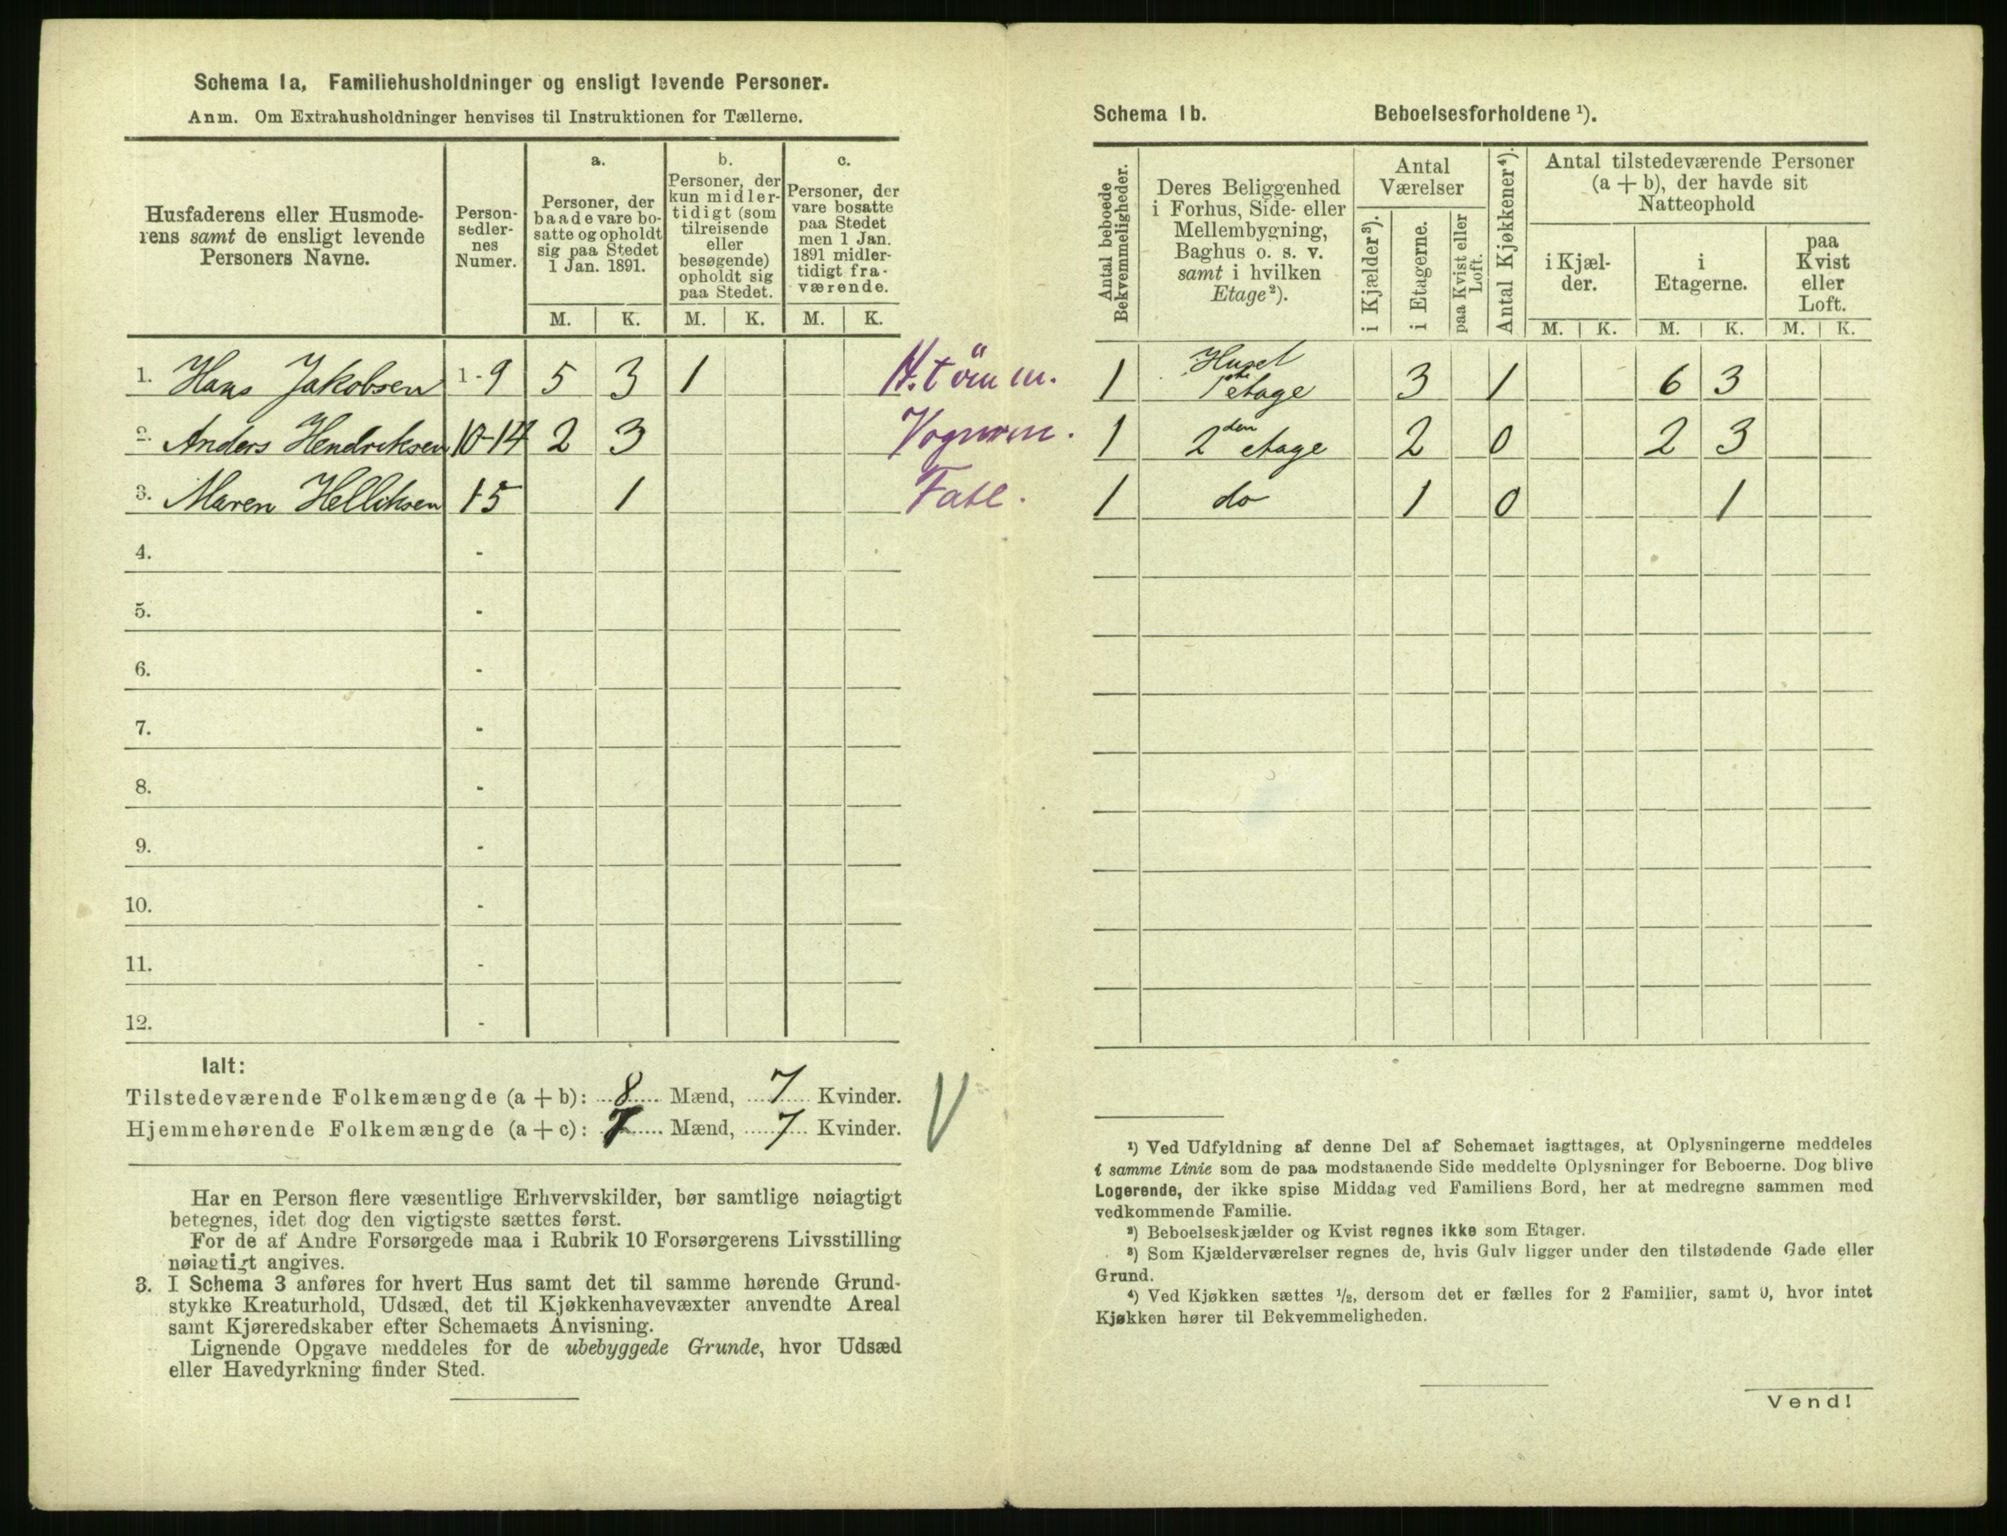 Schema 1a, Familiehusholdninger og ensligt levende Personer.
Anm. Om Extrahusholdninger henvises til Instruktionen for Tællerne.
Husfaderens eller Husmode-
rens samt de ensligt levende
Personers Navne.
Person-
sedler-
nes
Numer.
a.
Personer, der
baade vare bo-
satte og opholdt
sig paa Stedet
1 Jan. 1891.
b.
Personer, der
kun midler-
tidigt (som
tilreisende
eller
besøgende)
opholdt sig
paa Stedet.
c.
Personer, der
vare bosatte
paa Stedet
men 1 Jan.
1891 midler-
tidigt fra-
værende.
M. K. M. K. M. K.
1. Hans Jakobsen 1-9 5 3 1
2. Anders Hendriksen 10-14 2 3
3. Maren Helliksen 15 1 Fatl.
4. -
5. -
6. -
7. -
8. -
9. -
10. -
11. -
12. -
Ialt:
Tilstedeværende Folkemængde (a + b): 8 Mænd, 7 Kvinder.
Hjemmehørende Folkemængde (a + c): 7 Mænd, 7 Kvinder.
Har en Person flere væsentlige Erhvervskilder, bør samtlige nøiagtigt
betegnes, idet dog den vigtigste sættes først.
For de af Andre Forsørgede maa i Rubrik 10 Forsørgerens Livsstilling
nøiagtigt angives.
3. I Schema 3 anføres for hvert Hus samt det til samme hørende Grund-
stykke Kreaturhold, Udsæd, det til Kjøkkenhavevæxter anvendte Areal
samt Kjøreredskaber efter Schemaets Anvisning.
Lignende Opgave meddeles for de ubebyggede Grunde, hvor Udsæd
eller Havedyrkning finder Sted.
Schema 1b. Beboelsesforholdene ¹).
Antal beboede
Bekvemmeligheder.
Deres Beliggenhed
i Forhus, Side- eller
Mellembygning,
Baghus o. s. v.
samt i hvilken
Etage²).
Antal
Værelser
i Kjælder³).
i Etagerne.
paa Kvist eller
Loft.
Antal Kjøkkener⁴).
Antal tilstedeværende Personer
(a + b), der havde sit
Natteophold
i Kjæl-
der.
i
Etagerne.
paa
Kvist
eller
Loft.
M. K. M. K. M. K.
1 Huset
1ste etage 3 1 6 3
1 2den etage 2 0 2 3
1 do 1 0 1
¹) Ved Udfyldning af denne Del af Schemaet iagttages, at Oplysningerne meddeles
i samme Linie som de paa modstaaende Side meddelte Oplysninger for Beboerne. Dog blive
Logerende, der ikke spise Middag ved Familiens Bord, her at medregne sammen med
vedkommende Familie.
²) Beboelseskjælder og Kvist regnes ikke som Etager.
³) Som Kjælderværelser regnes de, hvis Gulv ligger under den tilstødende Gade eller
Grund.
⁴) Ved Kjøkken sættes ½, dersom det er fælles for 2 Familier, samt 0, hvor intet
Kjøkken hører til Bekvemmeligheden.
Vend!